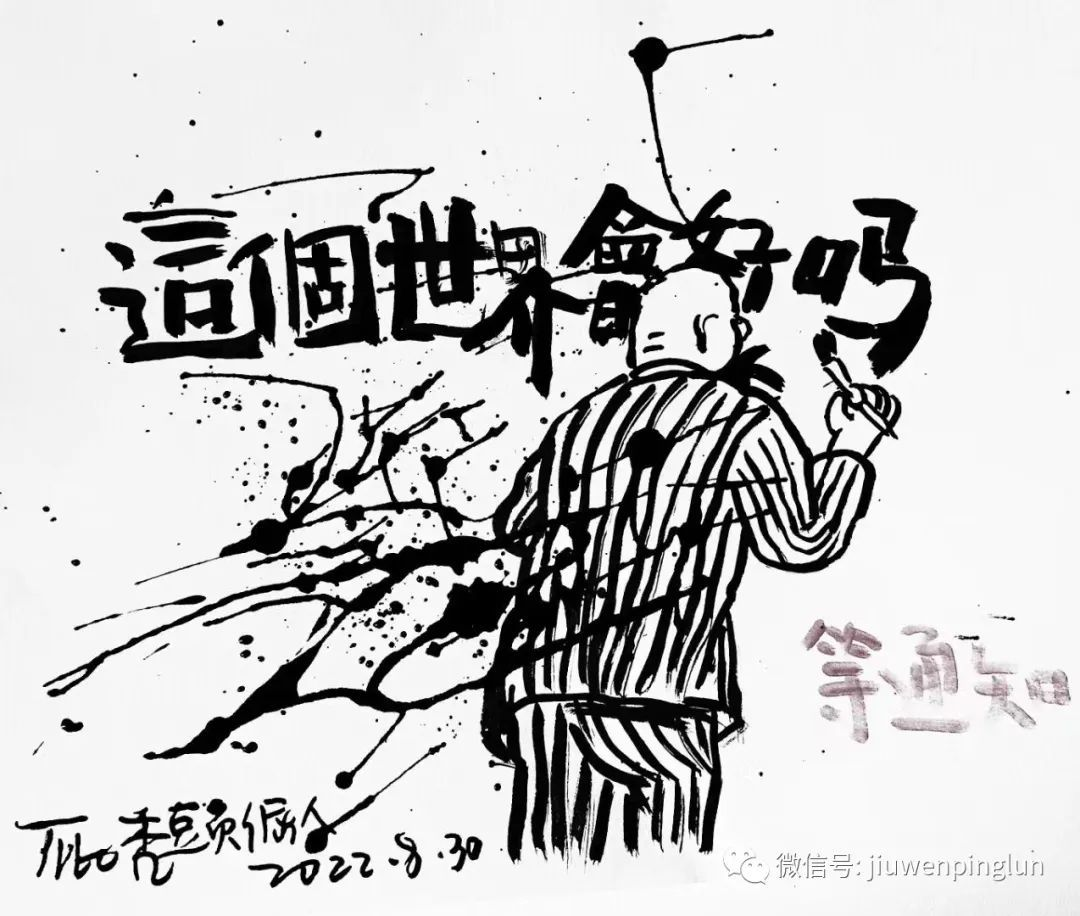 這個世界會好吗
等通知
2022.8.30
微信号: jiuwenpinglun